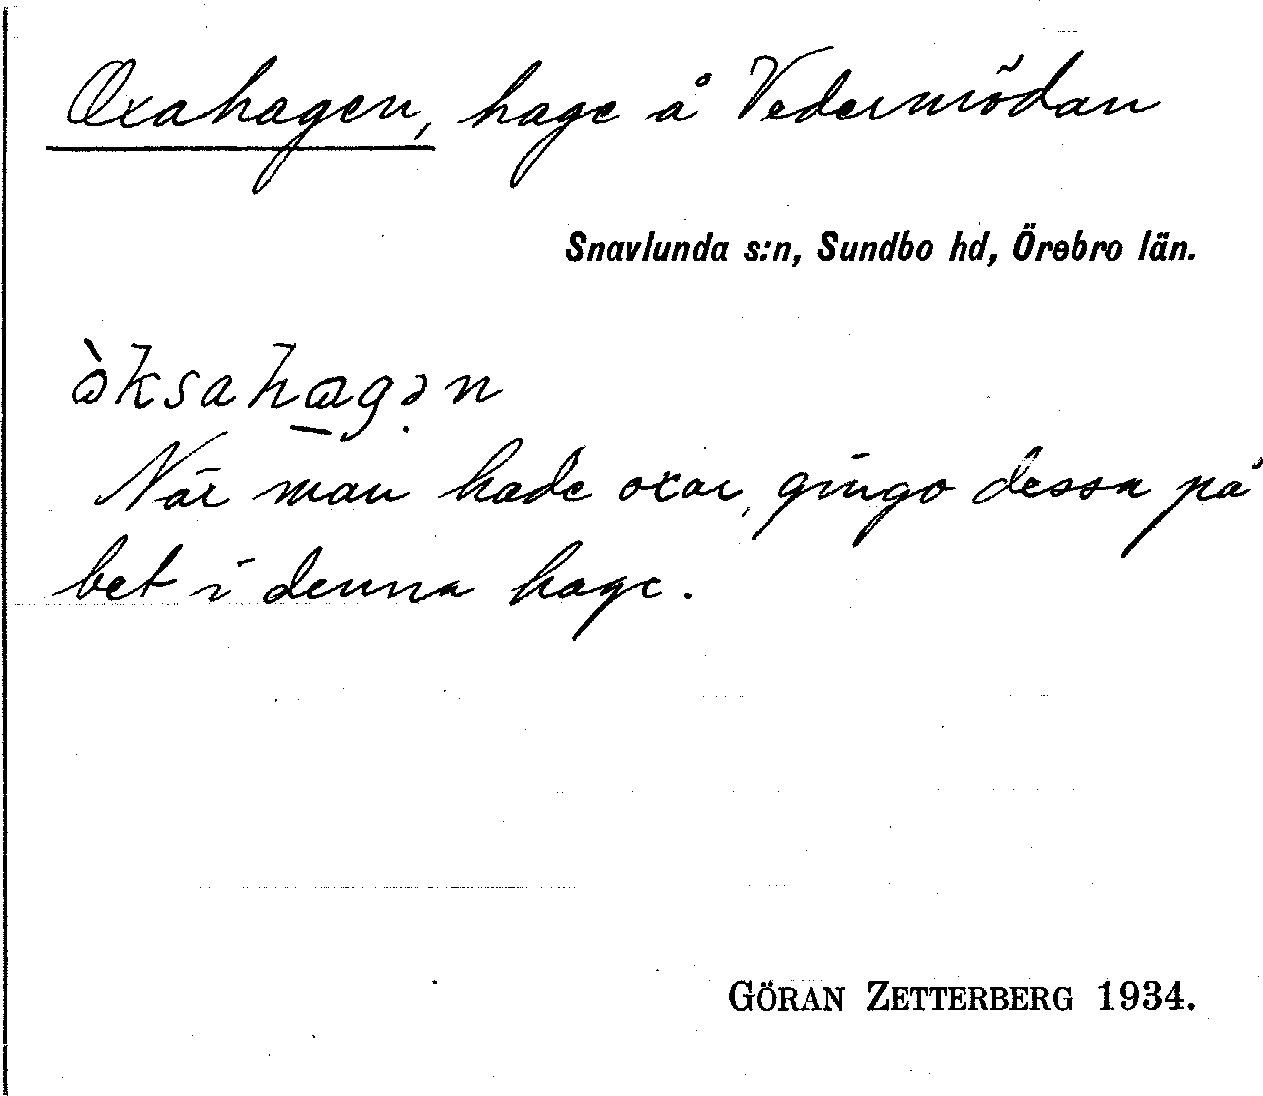 Oxahagen, hage å Vedermödan
Snavlunda s:n, Sundbo hd, Örebro län.
òksahagən
När man hade oxar, gingo dessa på
bet i denna hage.
GÖRAN ZETTERBERG 1934.